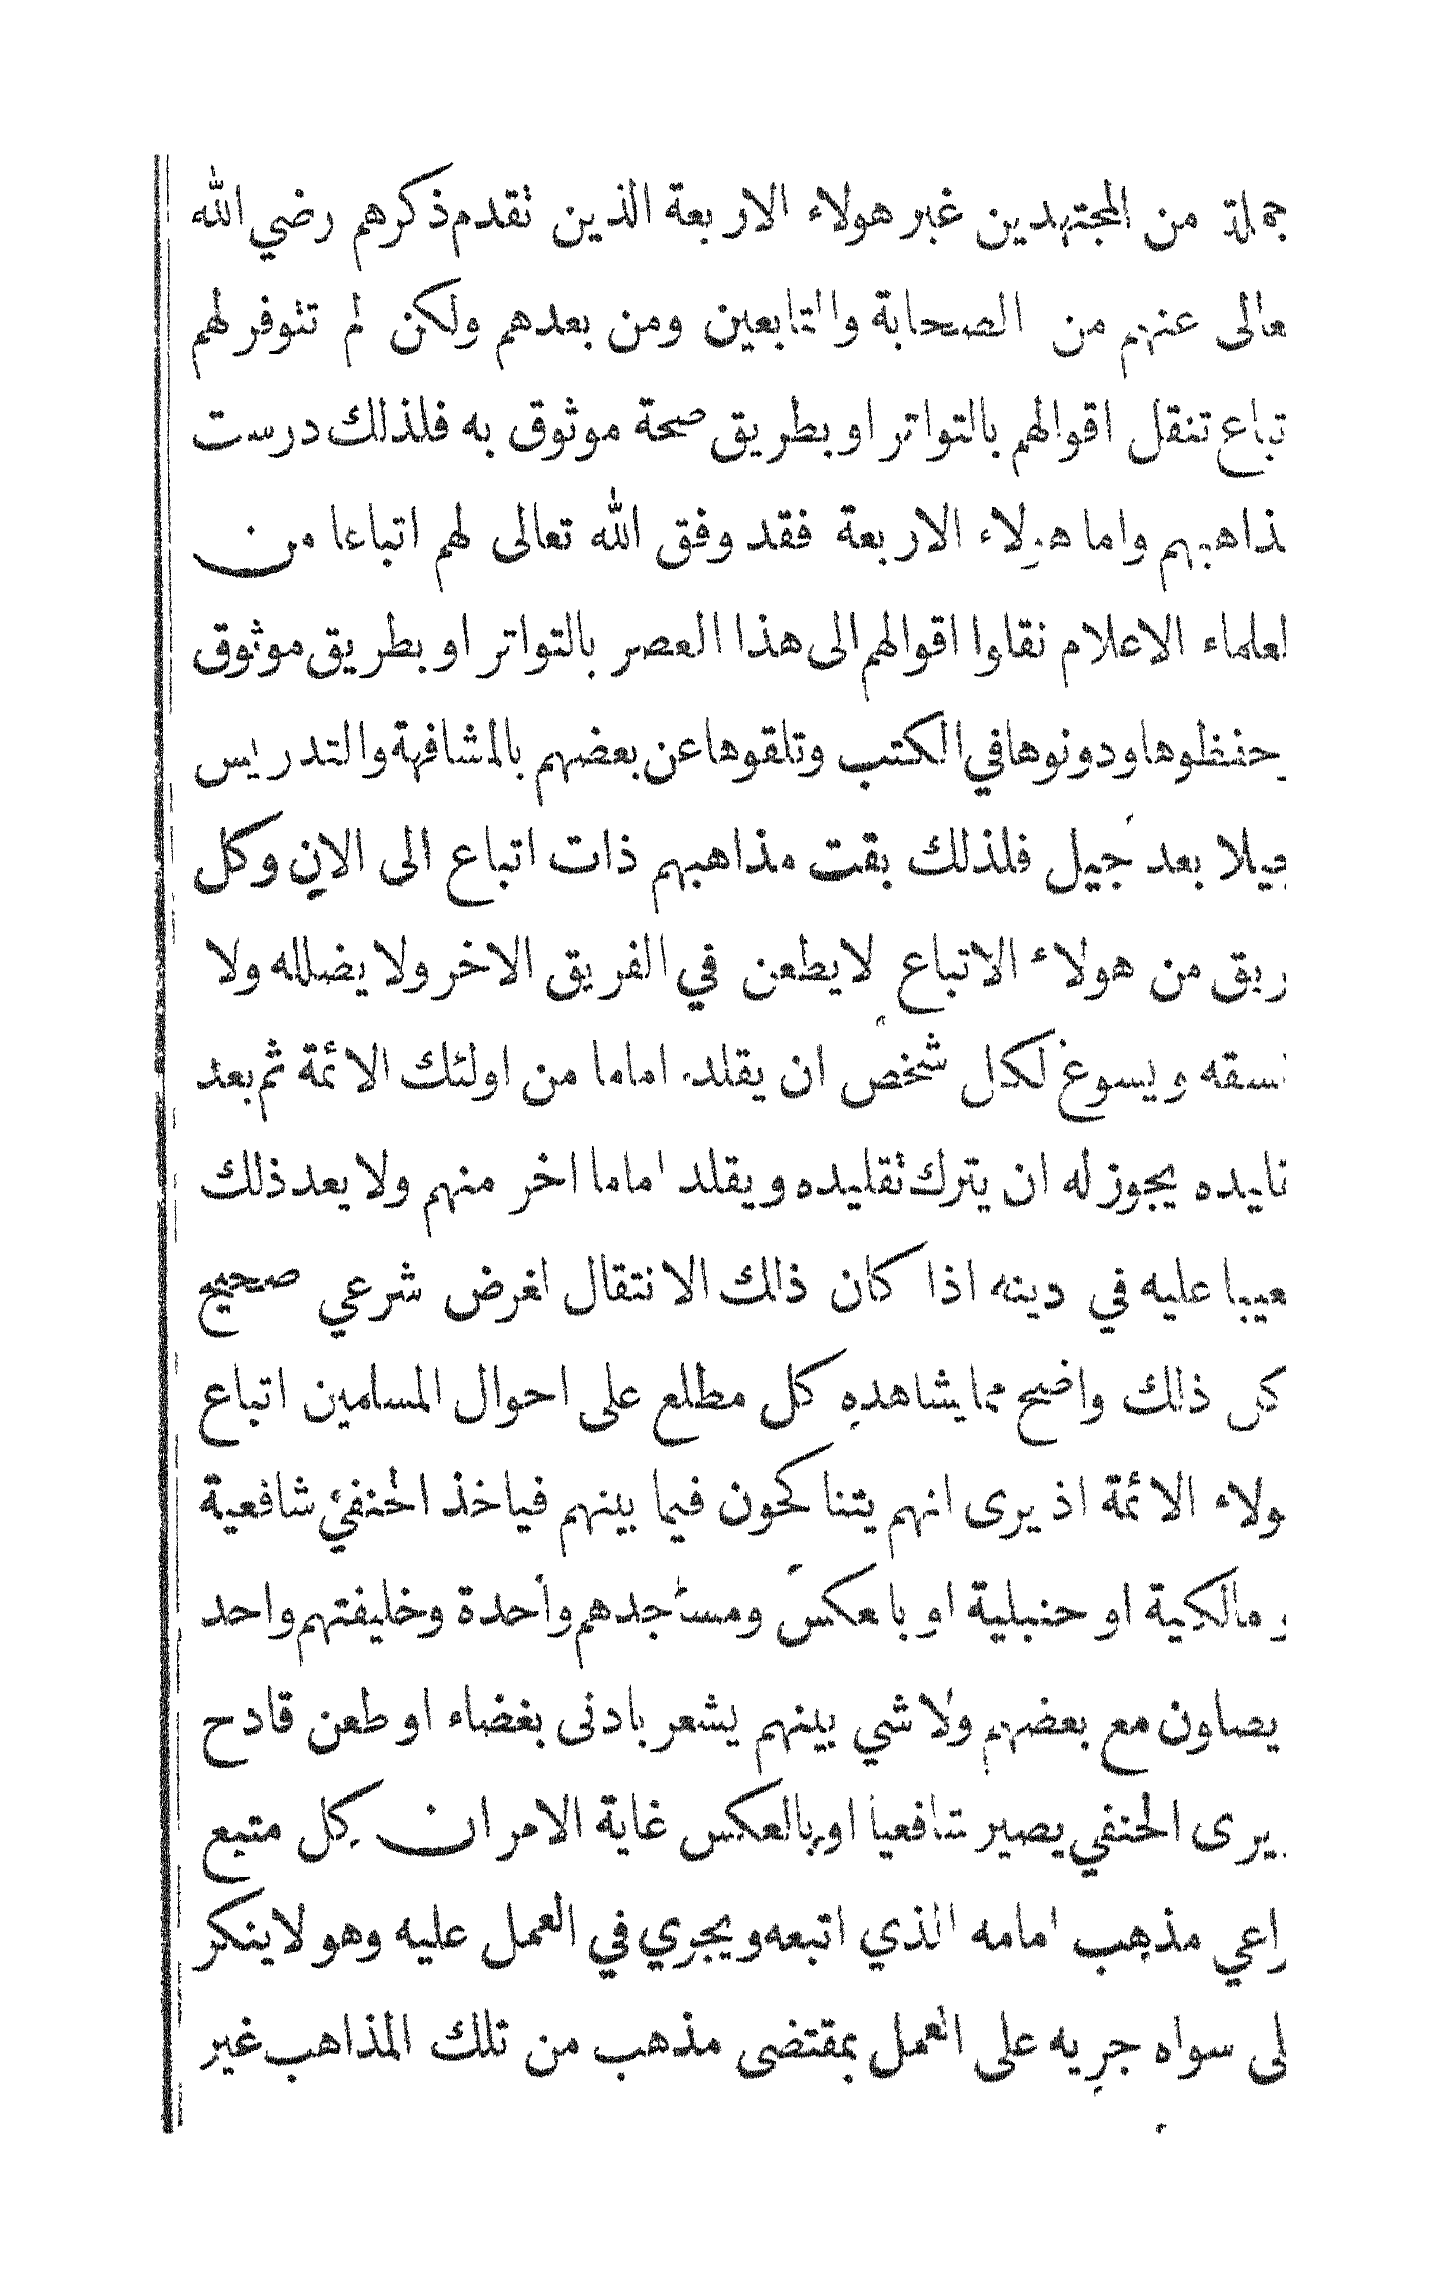 جملة من المجتهدين غير هولاء الاربعة الذين تقدم ذكرهم رضي الله
عالى عنهم من الصحابة والتابعين ومن بعدهم ولكن لم تتوفر لهم
تباع تنقل اقوالهم بالتواتر او بطريق صحة موثوق به فلذلك درست
ذاهبهم واما هولاء الاربعة فقد وفق الله تعالى لهم اتباعا من
لعلماء الاعلام نقلوا اقوالهم الى هذا العصر بالتواتر او بطريق موثوق
وحفظوها ودونوها في الكتب وتلقوها عن بعضهم بالمشافهة والتدريس
جيلا بعد جيل فلذلك بقت مذاهبهم ذات اتباع الى الان وكل
ريق من هولاء الاتباع لا يطعن في الفريق الاخر ولا يضلله ولا
فسقه ويسوغ لكل شخص ان يقلد اماما من اولئك الائمة ثم بعد
قليده يجوز له ان يترك تقليده ويقلد اماما اخر منهم ولا يعد ذلك
عيبا عليه في دينه اذا كان ذالك الانتقال لغرض شرعي صحيح
كل ذلك واضح مما يشاهده كل مطلع على احوال المسلمين اتباع
ولاء الائمة اذ يرى انهم يتناكحون فيما بينهم فياخذ الحنفي شافعية
و مالكية او حنبلية او بالعكس ومساجدهم واحدة وخليفتهم واحد
يصلون مع بعضهم ولا شي بينهم يشعر بادنى بغضاء او طعن قادح
يرى الحنفي يصير شافعيا او بالعكس غاية الامر ان كل متبع
راعي مذهب امامه الذي اتبعه ويجري في العمل عليه وهو لا ينكر
لى سواه جريه على العمل بمقتضى مذهب من تلك المذاهب غير